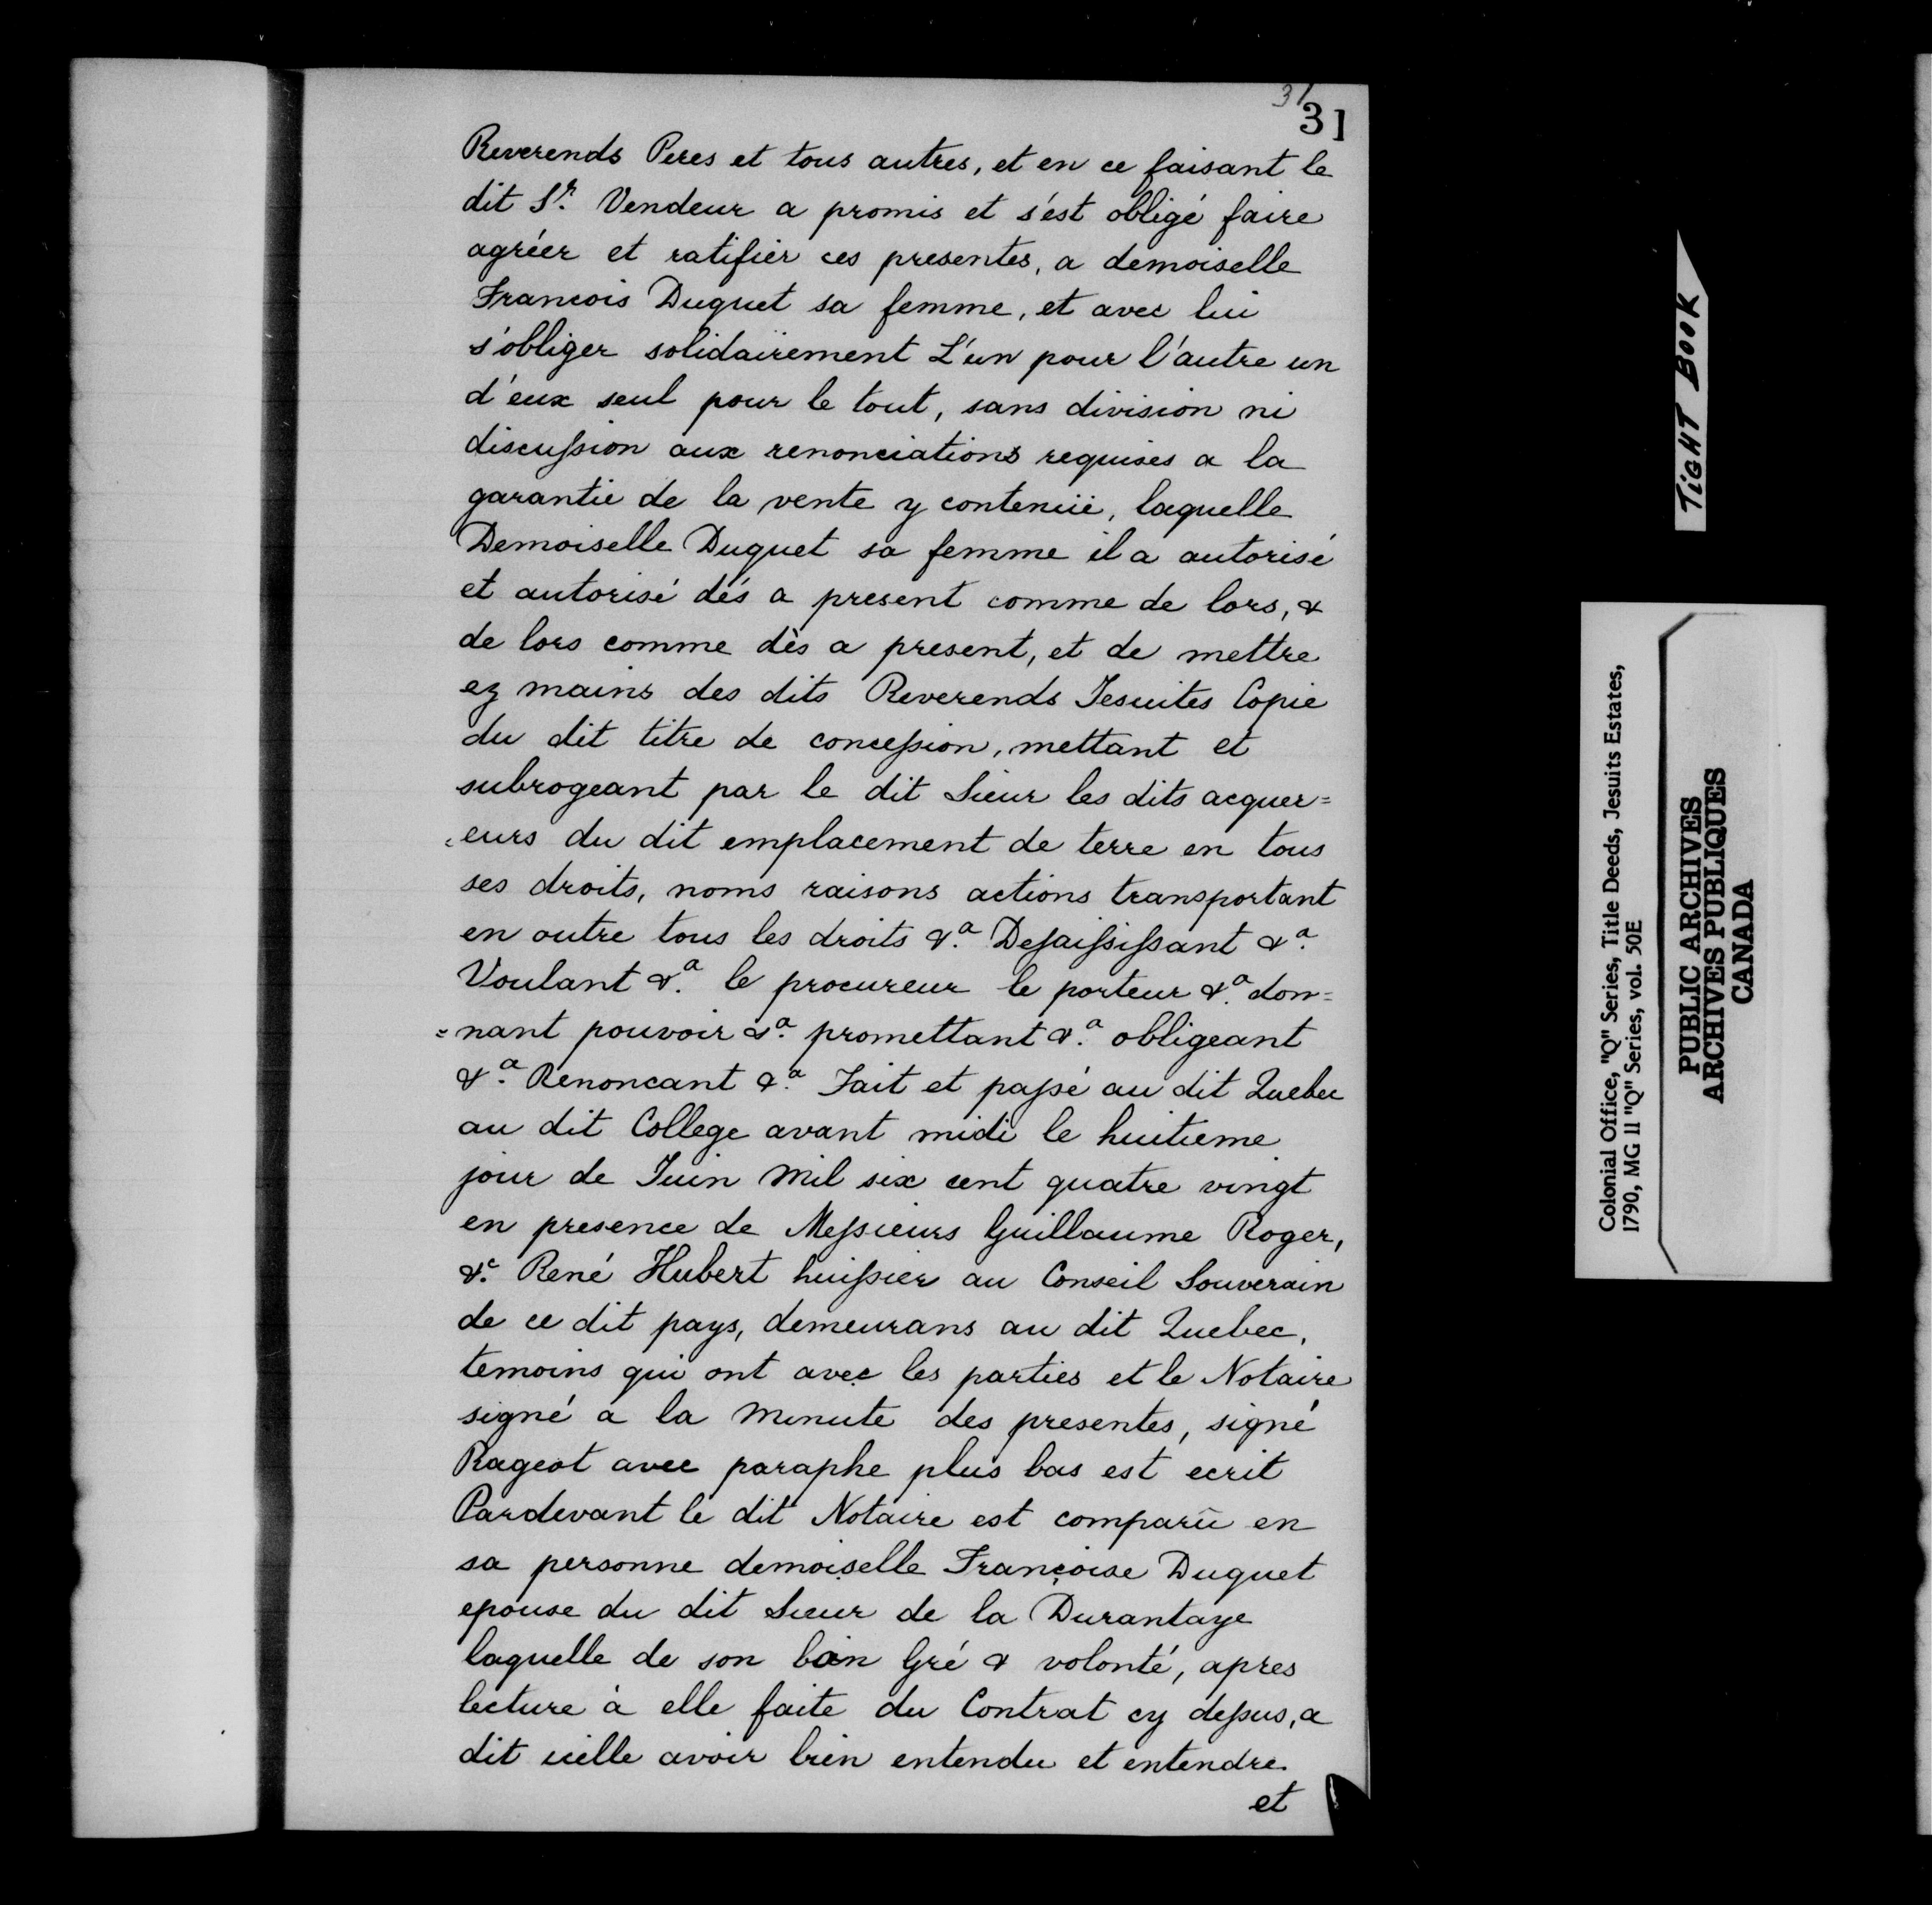 31
31
Reverends Peres et tous autres, et en ce faisant le
dit Sr. Vendeur a promis et s'est obligé faire
agréer et ratifier ces presentes, a demoiselle
Francois Duquet sa femme, et avec lui
s'obliger solidairement L'un pour l'autre un
d'eux seul pour le tout, sans division ni
discußion aux renonciations requises a la
garantie de la vente y contenüe, laquelle
Demoiselle Duquet sa femme il a autorisé
et autorisé dés a present comme de lors, &
de lors comme dès a present, et de mettre
ez mains des dits Reverends Jesuites Copie
du dit titre de conceßion, mettant et
subrogeant par le dit Sieur les dits acquer=
eurs du dit emplacement de terre en tous
ses droits, noms raisons actions transportant
en outre tous les droits &a. Deßaisißant &a.
Voulant &a. le procureur le porteur &a. don=
=nant pouvoir &a. promettant &a. obligeant
&a. Renoncant &a. Fait et paßé au dit Quebec
au dit College avant midi le huitieme
jour de Juin mil six cent quatre vingt
en presence de Meßieurs Guillaume Roger,
&c. René Hubert huißier au Conseil Souverain
de ce dit pays, demeurans au dit Quebec,
temoins qui ont avec les parties et le Notaire
signé a la minute des presentes, signé
Rageot avec paraphe plus bas est ecrit
Pardevant le dit Notaire est comparû en
sa personne demoiselle Françoise Duquet
epouse du dit Sieur de la Durantaye
laquelle de son bon Gré & volonté, apres
lecture à elle faite du Contrat cy deßus, a
dit icelle avoir bien entendu et entendre
et
TIGHT BOOK
Colonial Office, "Q" Series, Title Deeds, Jesuits Estates,
1790, MG 11 "Q" Series, vol. 50E
PUBLIC ARCHIVES
ARCHIVES PUBLIQUES
CANADA